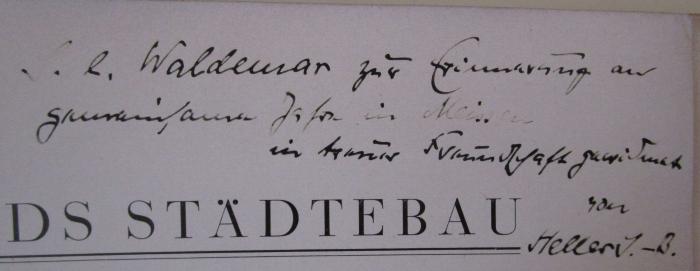 S. l. Waldemar zur Erinnerung an
gemeinsame Jahre in Meissen
in treuer Freundschaft gewidmet
von
DS STÄDTEBAU
Heller J.-B.